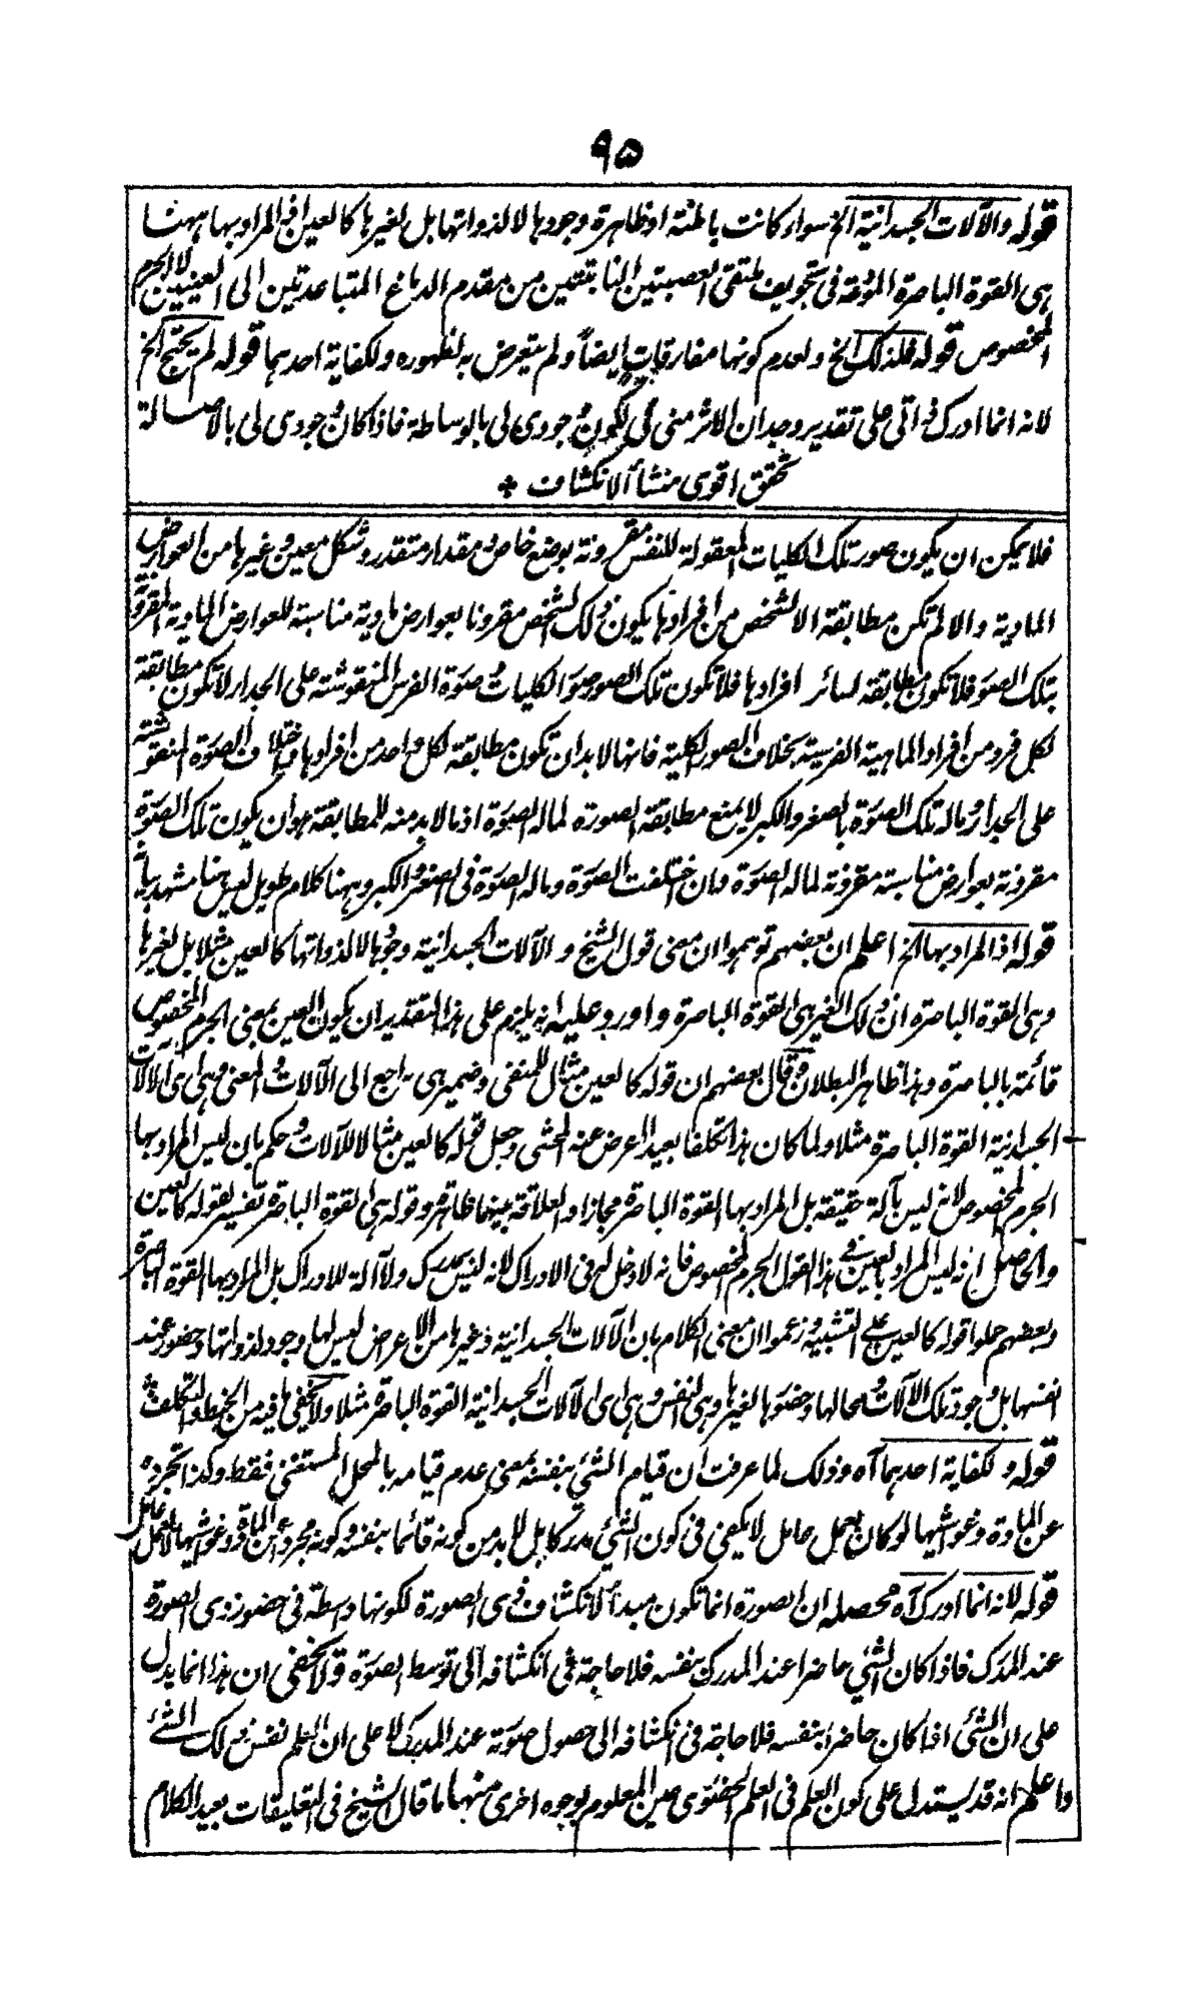 ٩٥
قوله والآلات الجسدانية الخ سواء كانت باطنة او ظاهرة وجودها لا لذواتها بل لغيرها كالعين اذ المراد بها ههنا
هى القوة الباصرة المودعة فى تجويف ملتقى العصبتين النابتتين من مقدم الدماغ المتباعدتين الى العينين لا الجرم
المخصوص قوله فلذلك الخ ولعدم كونها مفارقات ايضاً ولم يتعرض به لظهوره ولكفاية احدهما قوله لم يحتج الخ
لانه انما ادرك ذاتى على تقدير وجدان الاثر منى فى لكون وجودى لى بالوساطة فاذا كان وجودى لى بالاصالة
تحقق اقوى منشأ الانكشاف
فلا يمكن ان يكون صور تلك الكليات المعقولة للنفس مقرونة بوضع خاص ومقدار متقدر وشكل معين وغيرها من العوارض
المادية والا لم تكن مطابقة الا لشخص من افرادها يكون ذلك الشخص مقرونا بعوارض مادية مناسبة للعوارض المادية المقرونة
بتلك الصور فلا تكون مطابقة لسائر افرادها فلا تكون تلك الصور صور الكليات وصورة الفرس المنقوشة على الجدار لا تكون مطابقة
لكل فرد من افراد الماهية الفرسية بخلاف الصور الكلية فانها لا بد ان تكون مطابقة لكل واحد من افرادها واختلاف الصورة المنقوشة
على الجدار وماله تلك الصورة بالصغر والكبر لا يمنع مطابقة الصورة لماله الصورة اذ ما لا بد منه للمطابقة هو ان يكون تلك الصورة
مقرونة بعوارض مناسبة مقرونة لماله الصورة وان اختلفت الصورة وماله الصورة فى الصغر والكبر وههنا كلام طويل ليس هنا مشهد بيانه
قوله اذ المراد بها الخ اعلم ان بعضهم توهموا ان معنى قول الشيخ و الآلات الجسدانية وجودها لا لذواتها كالعين مثلا بل لغيرها
وهى القوة الباصرة ان ذلك الغير هى القوة الباصرة واورد عليه انه يلزم على هذا التقدير ان يكون العين بمعنى الجرم المخصوص
قائمة بالباصرة وهذا ظاهر البطلان وقال بعضهم ان قوله كالعين مثال للمنفى وضمير هى راجع الى الآلات والمعنى وهى اى الآلات
الجسدانية القوة الباصرة مثلا ولما كان هذا تكلفا بعيدا اعرض عنه المحشى وجعل قوله كالعين مثالا للآلات وحكم بان ليس المراد بها
الجرم المخصوص لانه ليس بآلة حقيقة بل المراد بها القوة الباصرة مجازا والعلاقة بينهما ظاهرة وقوله هى القوة الباصرة تفسير لقوله كالعين
والحاصل انه ليس المراد بالعين فى هذا القول الجرم المخصوص فانه لا دخل له فى الادراك لانه ليس بمدرك ولا آلة للادراك بل المراد بها القوة الباصرة
وبعضهم حملوا قوله كالعين على التشبيه وزعموا ان معنى الكلام بان الآلات الجسدانية وغيرها من الاعراض ليس لها وجود لذواتها وحضور عند
انفسها بل وجود تلك الآلات لمحالها وحضورها لغيرها وهى النفس وهى اى الآلات الجسدانية القوة الباصرة مثلا ولا يخفى ما فيه من الخبط والتكلف
قوله ولكفاية احدهما آه وذلك لما عرفت ان قيام الشئ بنفسه معنى عدم قيامه بالمحل المستغنى فقط وكذا تجرده
عن المادة وغواشيها لو كان بعمل عامل لا يكفى فى كون الشئ مدركا بل لا بد من كونه قائما بنفسه وكونه مجردا عن المادة وغواشيها لا بعمل عامل
قوله لانه انما ادرك آه محصله ان الصورة انما تكون مبدأ لانكشاف ذى الصورة لكونها واسطة فى حضور ذى الصورة
عند المدرك فاذا كان الشئ حاضرا عند المدرك بنفسه فلا حاجة فى انكشافه الى توسط الصورة ولا يخفى ان هذا انما يدل
على ان الشئ اذا كان حاضرا بنفسه فلا حاجة فى انكشافه الى حصول صورته عند المدرك لا على ان العلم نفس ذلك الشئ
واعلم انه قد يستدل على كون العلم فى العلم الحضورى عين المعلوم بوجوه اخرى منها ما قال الشيخ فى التعليقات بعيد الكلام